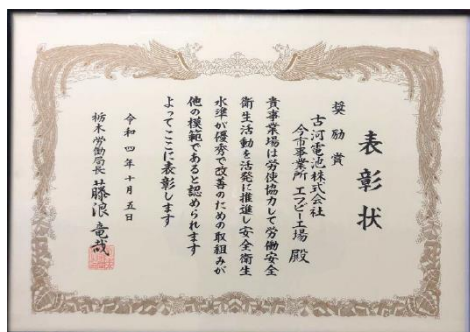 表彰状
奨励賞
古河電池株式会社
今市事業所 エフビー工場 殿
貴事業場は労使協力して労働安全
衛生活動を活発に推進し安全衛生
水準が優秀で改善のための取組みが
他の模範であると認められます
よってここに表彰します
令和四年十月五日
栃木労働局長 藤浪竜哉